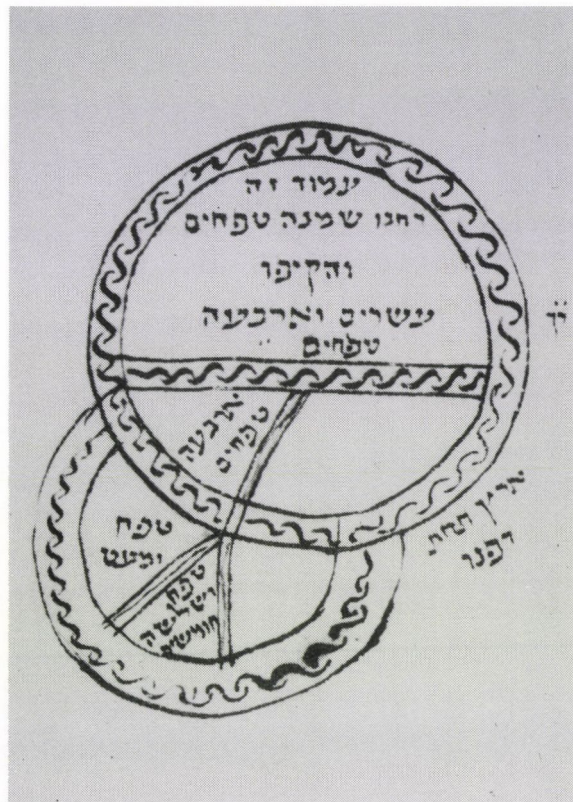 עמוד זה
רחבו שמנה טפחים
והקיפו
עשרים וארבעה
טפחים
ארבעה
טפחים
טפח
ומעט
טפח
ושלישה
חומשים
תחת
דפנו